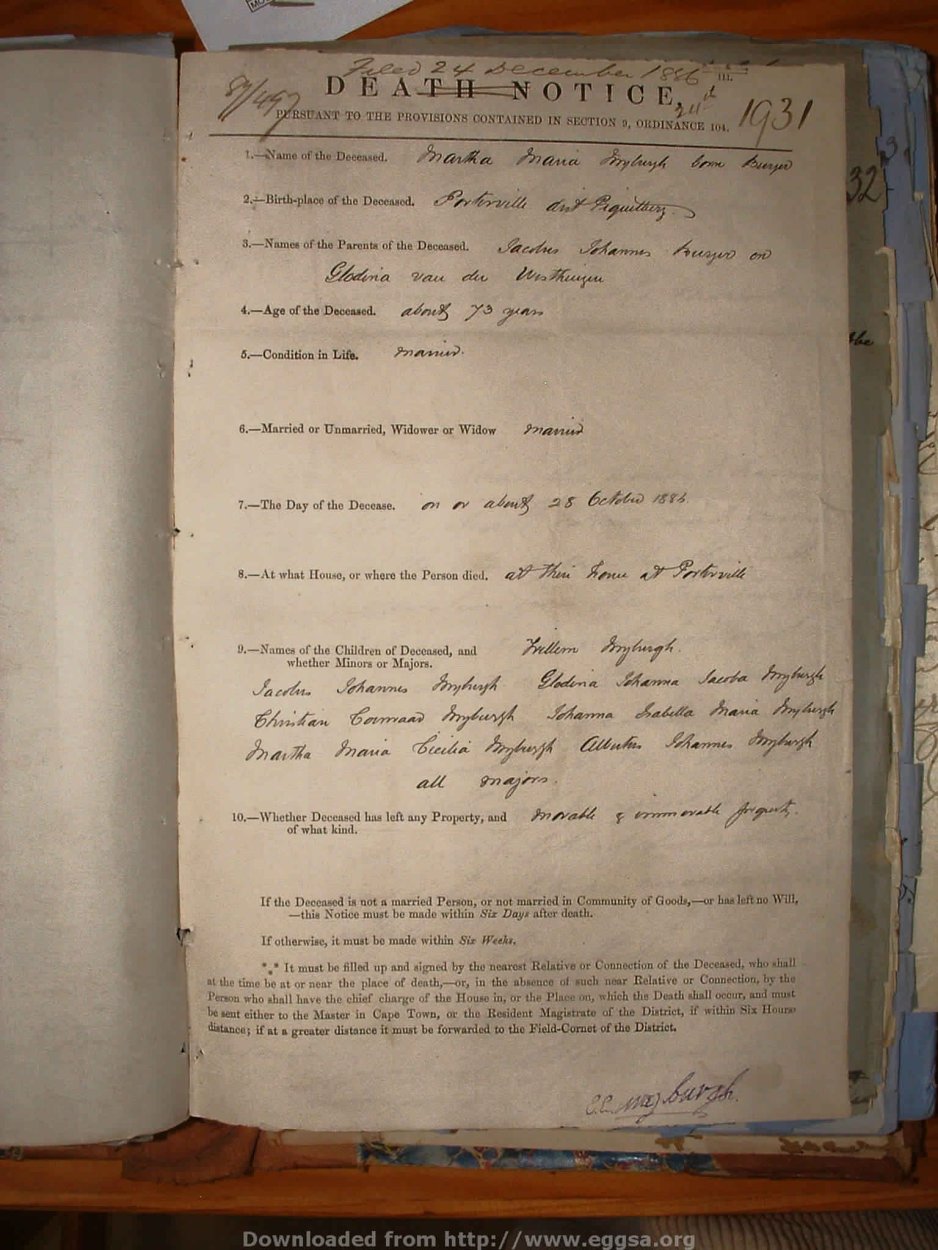 Filed 24 December 1886
III.
DEATH NOTICE,
24th
1931
PURSUANT TO THE PROVISIONS CONTAINED IN SECTION 9, ORDINANCE 104.
1.—Name of the Deceased. Martha Maria Myburgh born Burger
2.—Birth-place of the Deceased. Porterville dist Piquetberg
3.—Names of the Parents of the Deceased. Jacobus Johannes Burger en
Glodina van der Westhuizen
4.—Age of the Deceased. about 73 years
5.—Condition in Life. married.
6.—Married or Unmarried, Widower or Widow married
7.—The Day of the Decease. on or about 28 October 1886
8.—At what House, or where the Person died. at their home at Porterville
9.—Names of the Children of Deceased, and Willem Myburgh.
whether Minors or Majors.
Jacobus Johannes Myburgh Glodina Johanna Jacoba Myburgh
Christian Coenraad Myburgh Johanna Isabella Maria Myburgh
Martha Maria Cicilia Myburgh Albertus Johannes Myburgh
all majors.
10.—Whether Deceased has left any Property, and movable & immovable property.
of what kind.
If the Deceased is not a married Person, or not married in Community of Goods,—or has left no Will,
—this Notice must be made within Six Days after death.
If otherwise, it must be made within Six Weeks.
*** It must be filled up and signed by the nearest Relative or Connection of the Deceased, who shall
at the time be at or near the place of death,—or, in the absence of such near Relative or Connection, by the
Person who shall have the chief charge of the House in, or the Place on, which the Death shall occur, and must
be sent either to the Master in Cape Town, or the Resident Magistrate of the District, if within Six Hours'
distance; if at a greater distance it must be forwarded to the Field-Cornet of the District.
C.C. Myburgh.
32
the
Downloaded from http://www.eggsa.org